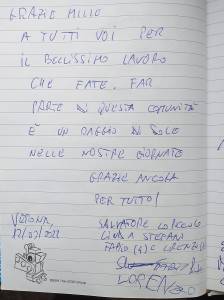 GRAZIE MILLE
A TUTTI VOI PER
IL BELLISSIMO LAVORO
CHE FATE. FAR
PARTE DI QUESTA COMUNITÀ
È UN RAGGIO DI SOLE
NELLE NOSTRE GIORNATE
GRAZIE ANCORA
PER TUTTO!
SALVATORE
STEFANI
FABIO E LORENZO
LORENZO